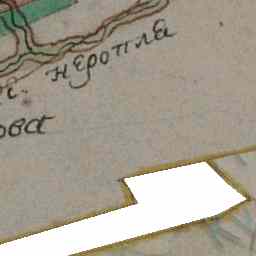 неропла
ова